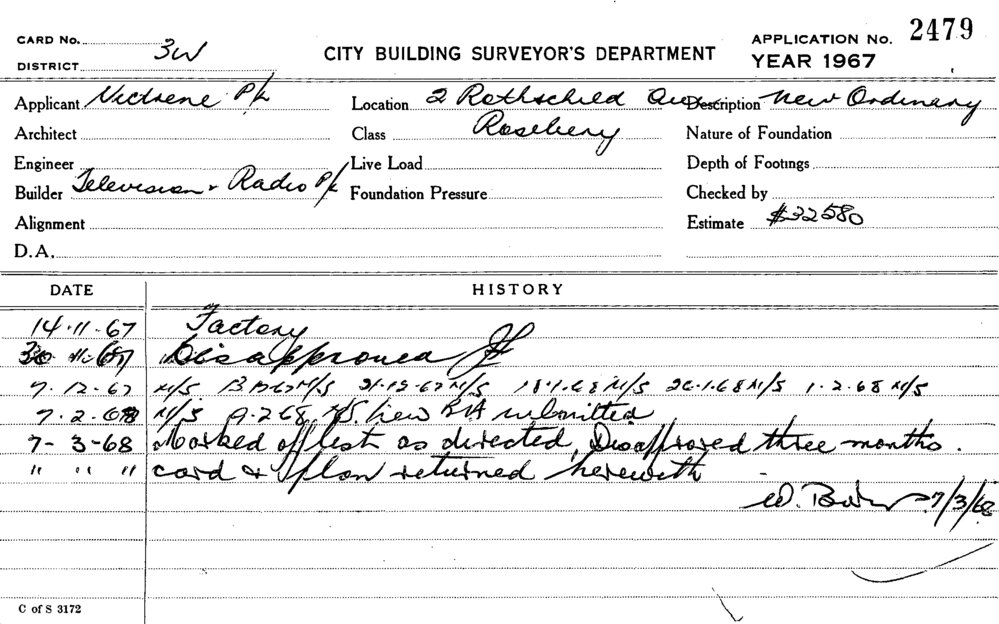 CARD No.
DISTRICT 3W
CITY BUILDING SURVEYOR'S DEPARTMENT
APPLICATION No. 2479
YEAR 1967
Applicant P/L
Location 2 Rothschild Ave
Description New Ordinary
Architect
Class Rosebery
Nature of Foundation
Engineer
Live Load
Depth of Footings
Builder Television & Radio P/L
Foundation Pressure
Checked by
Alignment
Estimate $32580
D.A.
DATE HISTORY
14.11.67 Factory
30.11.67 Disapproved
7.12.67 M/S 21.12.67 M/S 18.1.68 M/S 26.1.68 M/S 1.2.68 M/S
7.2.68 M/S 9.2.68 M/S New BA submitted
7-3-68 Marked off list as directed, Disapproved three months.
" " " card & plan returned herewith
W. 7/3/68
C of S 3172